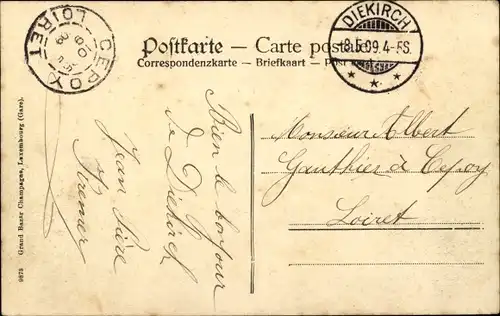 CEPOY
LOIRET
DIEKIRCH
18.5.09.4-5S.
Postkarte – Carte postale
Correspondenzkarte – Briefkaart – Post
Bien le bonjour
de Diekirch
Jean Pierre
Monsieur Albert
Gauthier à Cepoy
Loiret
9873 Grand Bazar Champagne, Luxembourg (Gare).